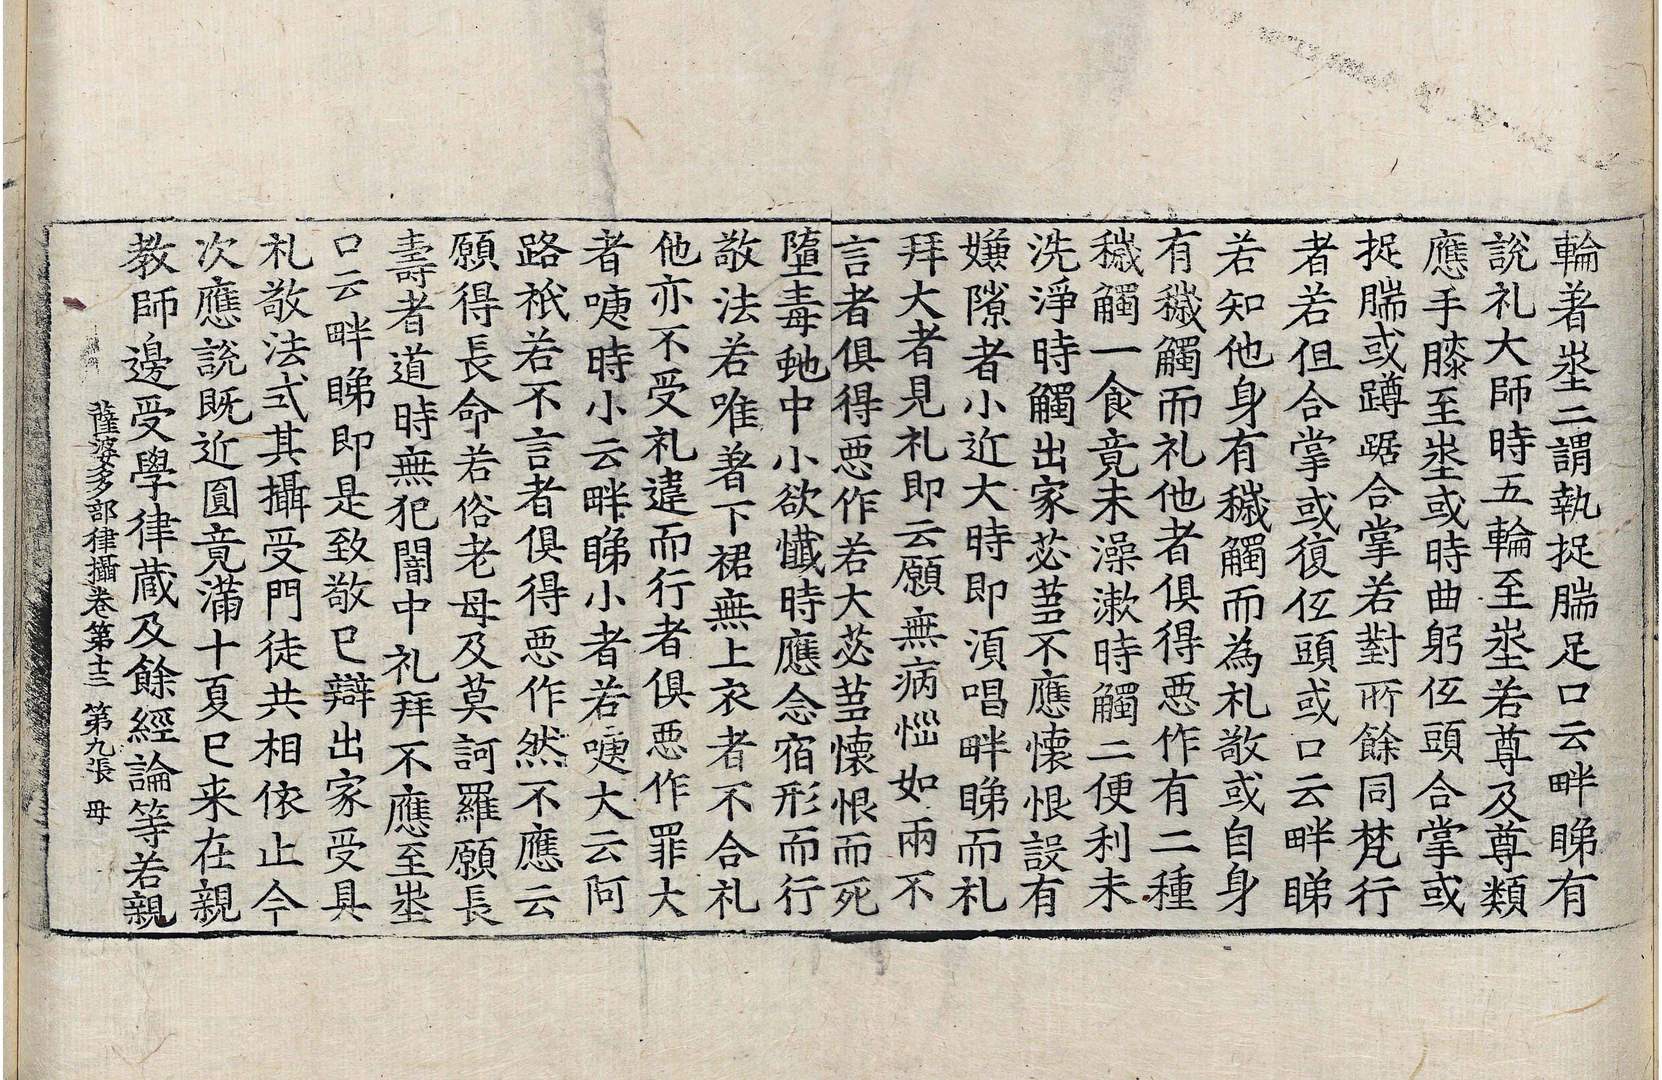 輪著㘴二謂執捉腨足口云畔睇有
說礼大師時五輪至㘴若尊及尊類
應手膝至㘴或時曲躬仾頭合掌或
捉腨或蹲踞合掌若對所餘同梵行
者若但合掌或復仾頭或口云畔睇
若知他身有穢觸而為礼敬或自身
有穢觸而礼他者俱得惡作有二種
穢觸一食竟未澡漱時觸二便利未
洗淨時觸出家苾芻不應懷恨設有
嫌隙者小近大時即湏唱畔睇而礼
拜大者見礼即云願無病惱如兩不
言者俱得惡作若大苾芻懷恨而死
墮毒虵中小欲懺時應念宿形而行
敬法若唯著下裙無上衣者不合礼
他亦不受礼違而行者俱惡作罪大
者㖒時小云畔睇小者若㖒大云阿
路祇若不言者俱得惡作然不應云
願得長命若俗老母及莫訶羅願長
壽者道時無犯闇中礼拜不應至㘴
口云畔睇即是致敬巳辯出家受具
礼敬法式其攝受門徒共相依止今
次應說既近圓竟滿十夏巳来在親
教師邊受學律蔵及餘經論等若親
薩婆多部律攝卷第十三 第九張 母